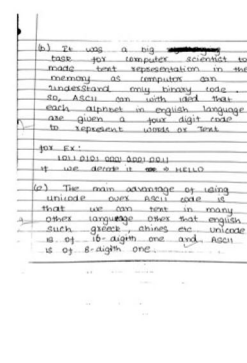 (b) It was a big
task for computer scientist to
made text representation in the
memory as computers can
understand only binary code.
so, ASCII can with idea that
each alphbet in english language
are given a four digit code
to represent words or Text
for Ex:
1011 0101 0001 0001 0011
if we decode it HELLO
(c) The main advantage of using
unicode over ASCII code is
that we can text in many
other language other that english
such greeck, chines etc. unicode
is of 16-digith one and ASCII
is of 8-digith one.